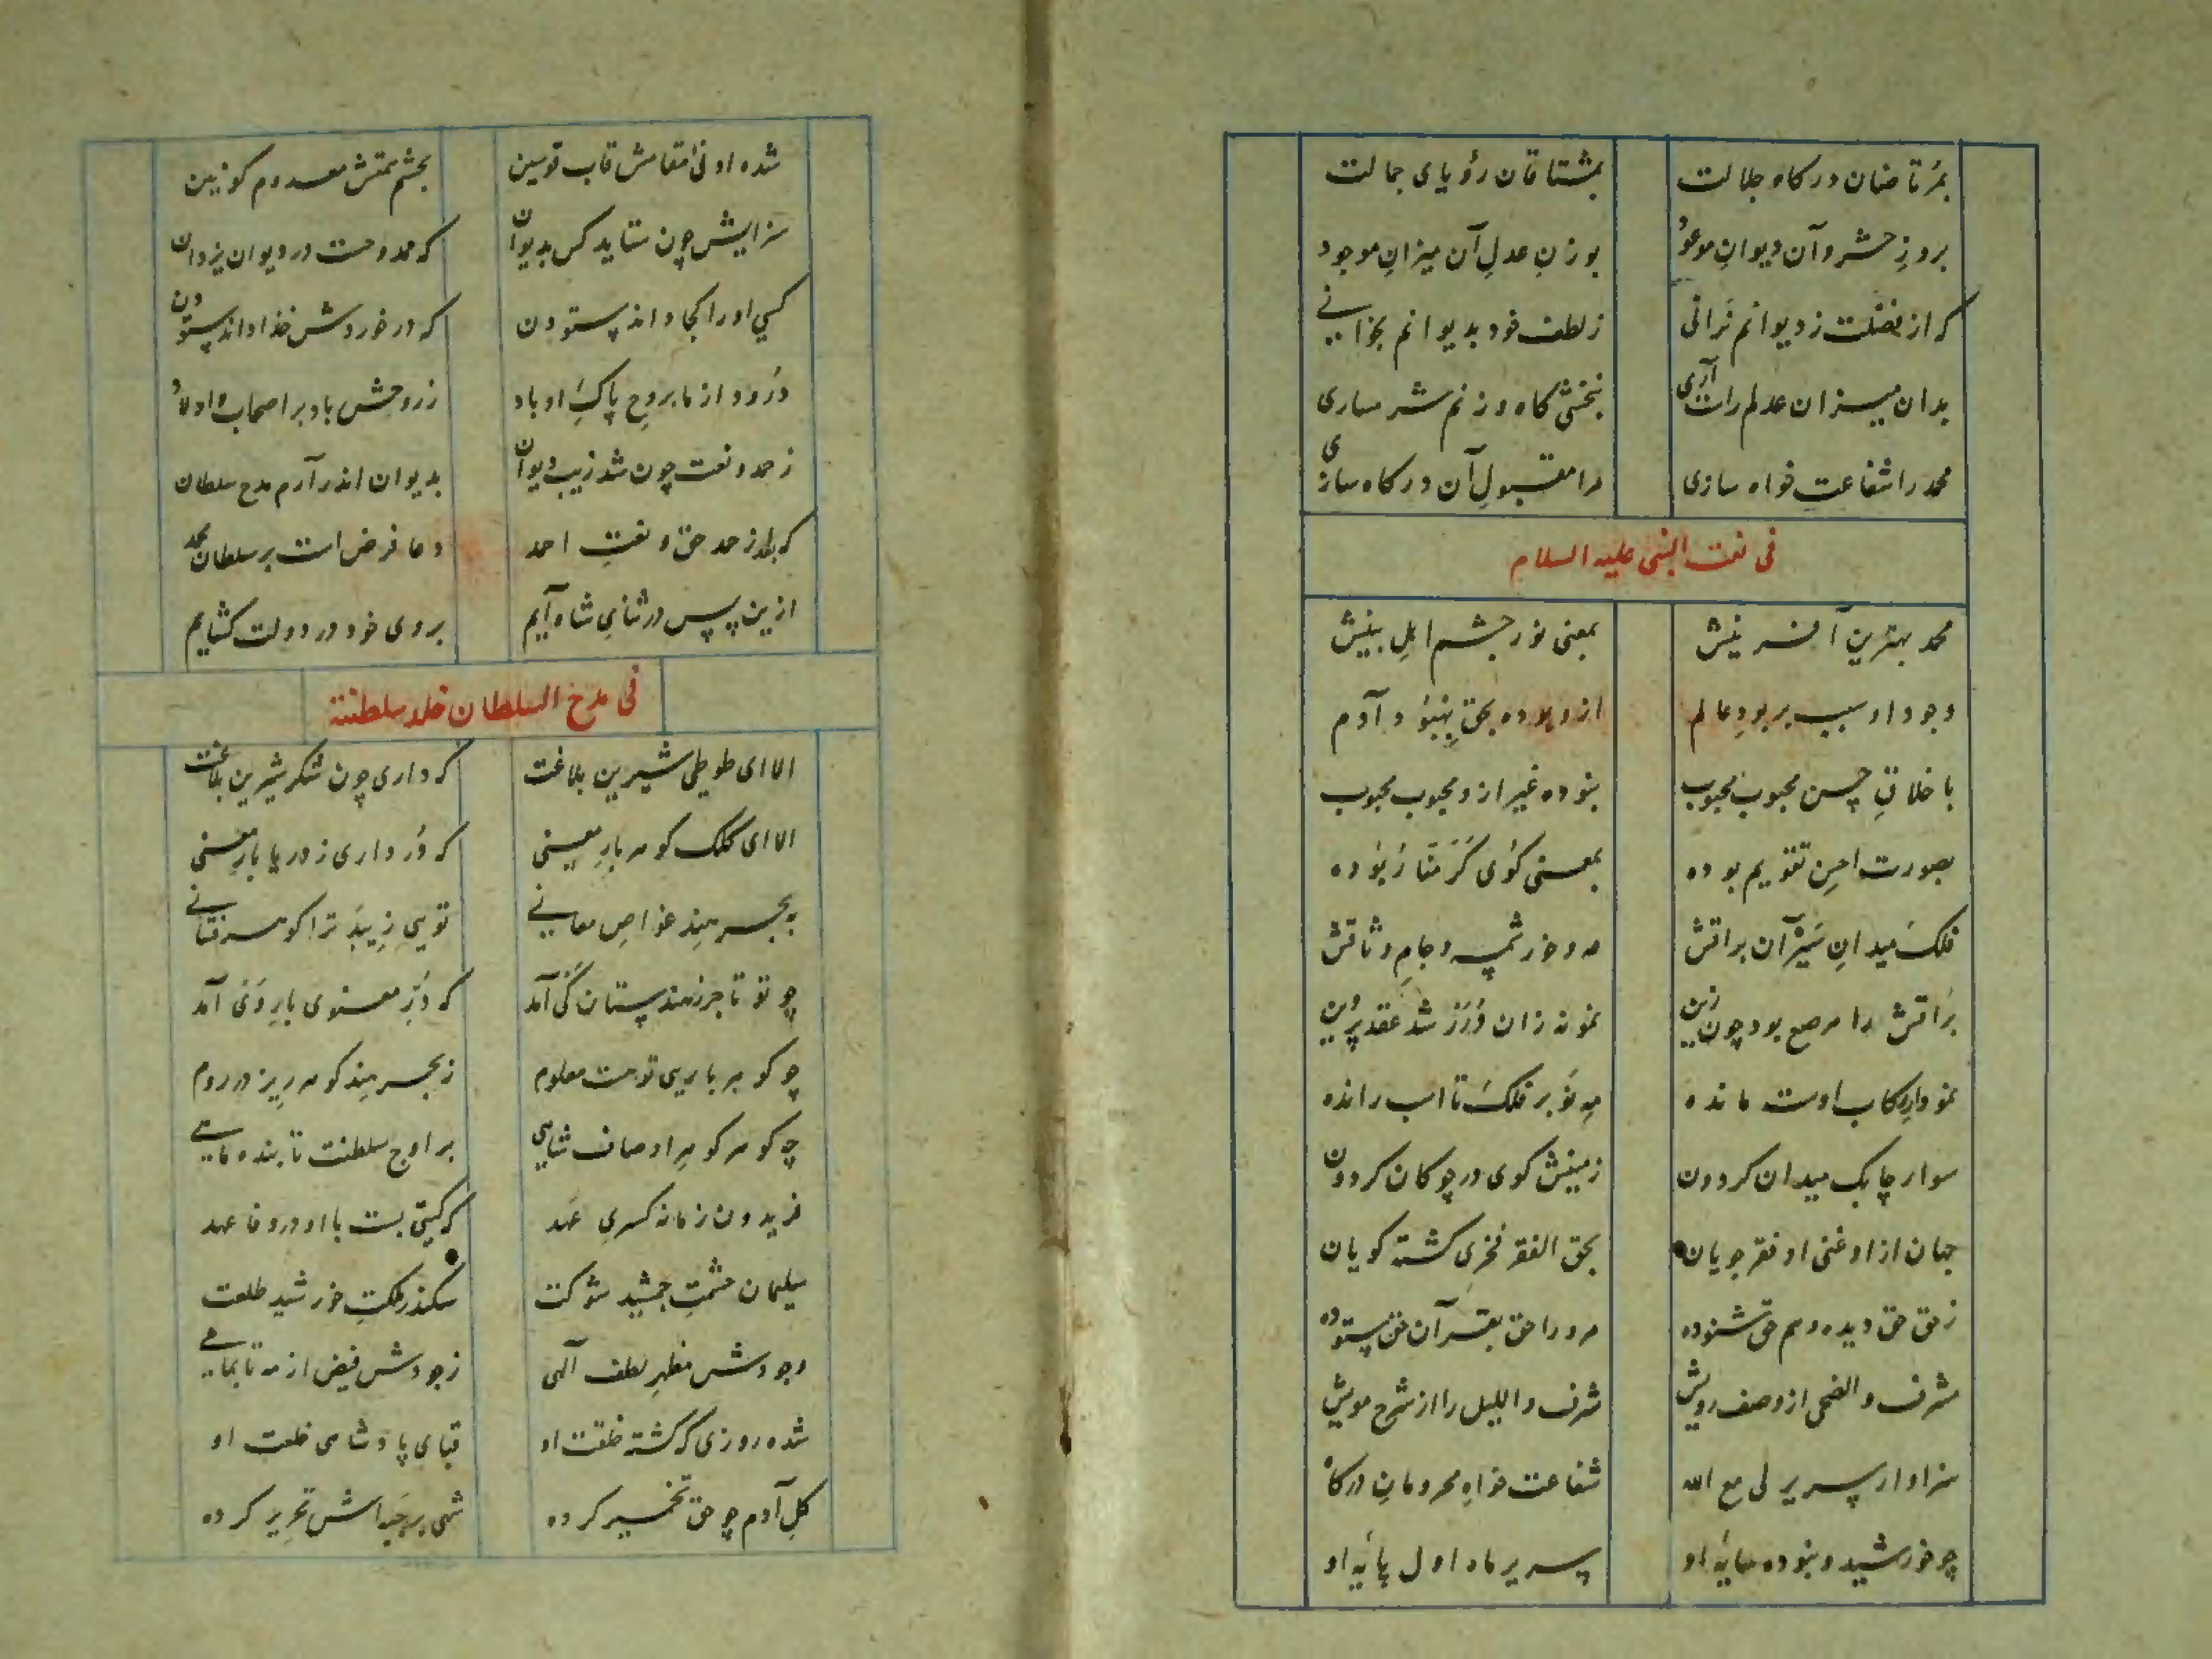 بمرتاضان درگاه جلالت بمشتاقان رؤیای جمالت
بروزِ حشر و آن دیوانِ موعود بوزنِ عدلِ آن میزانِ موجود
که از فضلت ز دیوانم نرانی ز لطف خود بدیوانم بخوانی
بدان میزان عدلم راست آری نبخشی گاه وزنم شرمساری
محمد را شفاعت خواه سازی مرا مقبولِ آن درگاه سازی
فی نعت النبی علیه السلام
محمد بهترینِ آفرینش بمعنی نور چشم اهلِ بینش
وجود او سبب بر بودِ عالم ازو بوده بحق بهبود آدم
باخلاقِ حسن محبوب محبوب نبوده غیر ازو محبوب محبوب
بصورت احسنِ تقویم بوده بمعنی کُوی کَرَّمنَا رُبُوده
فلک میدانِ سَیْرِ آن براقش مه و خور شمسه و جامِ وثاقش
بُراقش را مرصع بود چون زین نمونه زان دُرَرْ شد عقد پروین
نمودارِ رکاب اوست مانده مهِ نَو بر فلک تا اسب رانده
سوار چابک میدان گردون زمینش گوی در چوگان گردون
جهان از او غنی او فقر جویان بحق الفقر فخری گشته گویان
ز حق حق دیده و هم حق شنوده مرو را حق بقرآن حق ستوده
مشرف والضحی از وصف رویش شرف واللیل را از شرح مویش
سزاوار سریر لی مع الله شفاعت خواهِ محرومانِ درگاه
چو خورشید و نبوده سایهٔ او سریر ماه اول پایهٔ او
شده او ادنی مقامش قاب قوسین بچشم همتش معدوم کونین
سزایش چون ستاید کس بدیوان که ممدوحست در دیوان یزدان
کسی او را کجا داند ستودن که در خوردش خدا داند ستودن
دُرود از ما بروحِ پاکِ او باد ز روحش باد بر اصحاب و اولاد
ز حمد و نعت چون شد زیب دیوان بدیوان اندر آرم مدح سلطان
که بعد از حمد حق و نعتِ احمد دعا فرض است بر سلطان محمد
ازین پس در ثنایِ شاه آیم بروی خود در دولت گشایم
فی مدح السلطان خلد سلطنته
الا ای طوطی شیرین بلاغت که داری چون شکر شیرین بلاغت
الا ای کلک گوهربارِ معنی که دُر داری ز دریا بارِ معنی
به بحر هند غواصِ معانی تویی زیبد ترا گوهر فشانی
چو تو تاجر ز هندستان کَی آمد که دُرِّ معنوی بارِ وَی آمد
چو گوهر باریِ تو هست معلوم ز بحر هند گوهر ریز در روم
چه گوهر گوهرِ اوصاف شاهی بر اوج سلطنت تابنده ماهی
فریدون زمانه کسریِ عهد که گیتی بست با او در وفا عهد
سلیمان حشمتِ جمشید شوکت سکندر ملکتِ خورشید طلعت
وجودش مظهرِ لطف آلهی ز جودش فیض از مه تا بماهی
شده روزی که گشته خلقت او قبای پادشاهی خلعت او
گلِ آدم چو حق تخمیر کرده شهی بر جبهه‌اش تحریر کرده